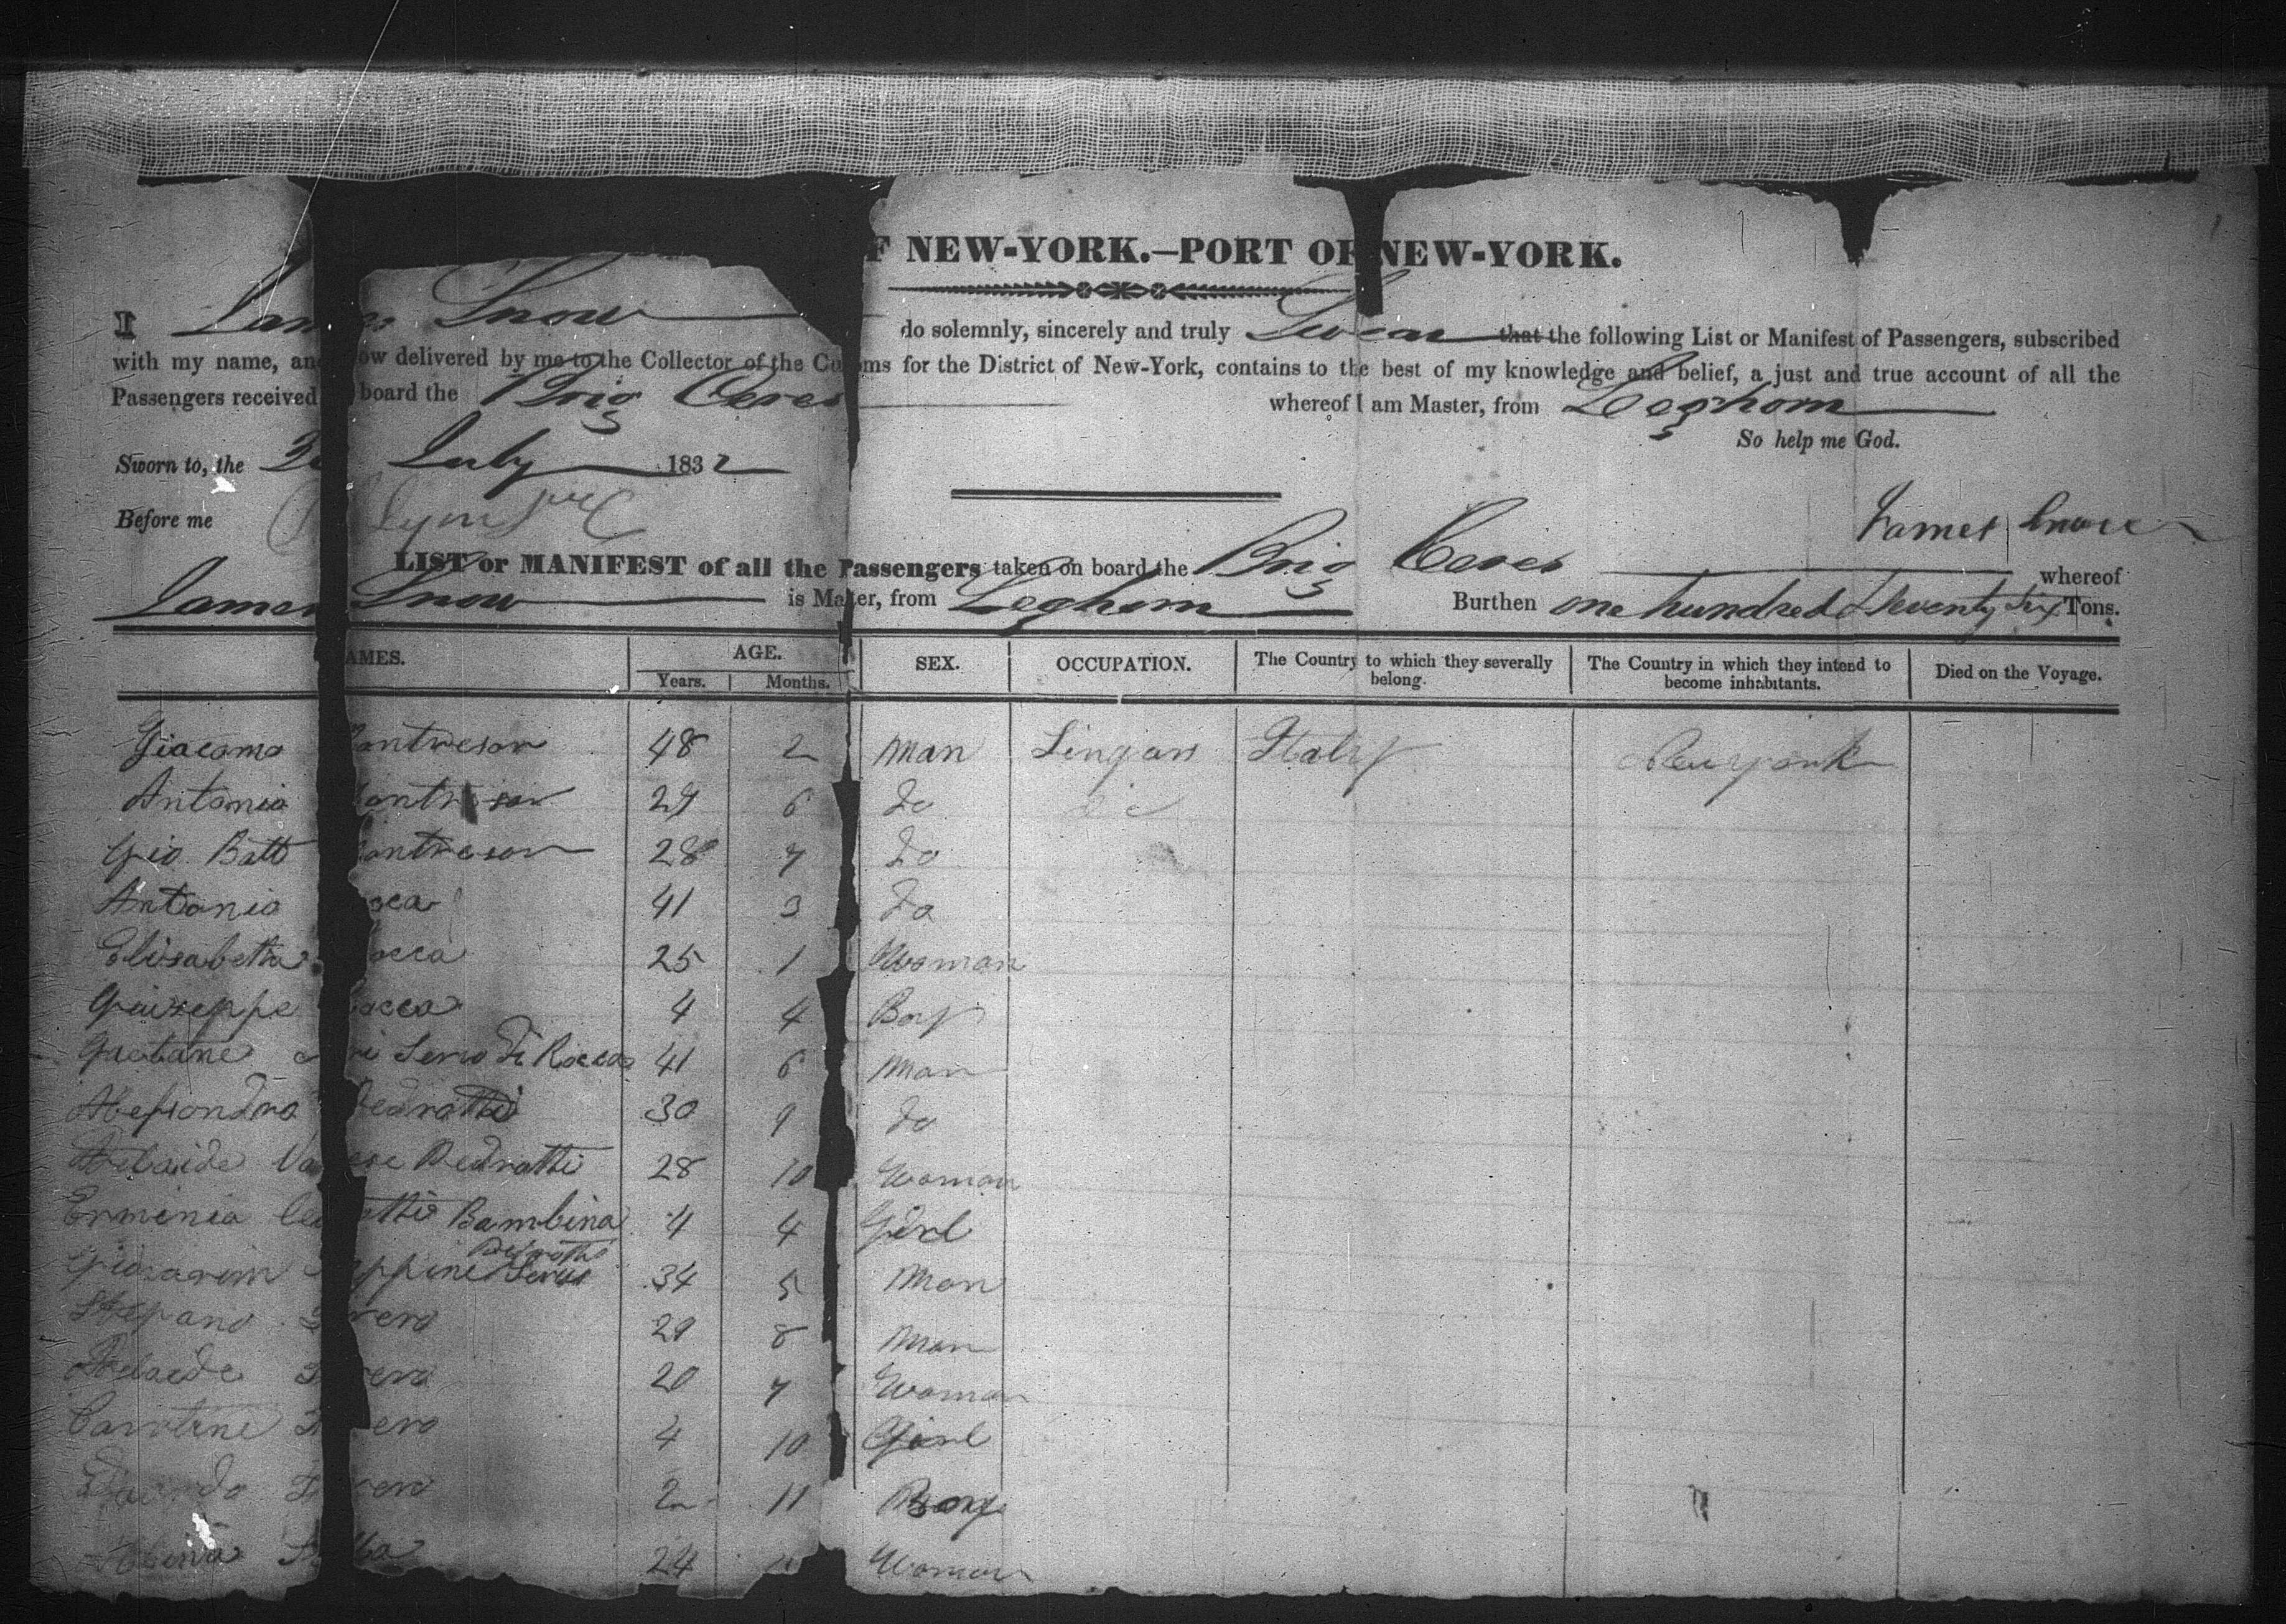 F NEW-YORK.—PORT OF NEW-YORK.
I James Snow do solemnly, sincerely and truly Swear that the following List or Manifest of Passengers, subscribed
with my name, an ow delivered by me to the Collector of the Cu oms for the District of New-York, contains to the best of my knowledge and belief, a just and true account of all the
Passengers received board the Brig Ceres whereof I am Master, from Leghorn
So help me God.
Sworn to, the July 1832
Before me
James Snow
LIST or MANIFEST of all the Passengers taken on board the Brig Ceres whereof
James Snow is Master, from Leghorn Burthen one hundred & Seventy Six Tons.
AMES. AGE. SEX. OCCUPATION. The Country to which they severally belong. The Country in which they intend to become inhabitants. Died on the Voyage.
Years. Months.
Giacomo ontresor 48 2 man Singars Italy Newyork
Antonio ontresor 29 6 do do
Gio Batt ontresor 28 7 do
Antonio occa 41 3 do
Elisabetta occa 25 1 Woman
Giuseppe occa 4 4 Boy
Gaetane ri Servo di Rocca 41 6 man
Alessandro edrotti 30 9 do
Adelaide Va ese Pedrotti 28 10 Woman
Erminia otti Bambina 4 4 Girl
Pedrotti
ppine Servo 34 5 Man
Stepano rero 29 8 Man
Adelaide rero 20 7 Woman
Carotine ero 4 10 Girl
rero 2 11 Boy
Albina 24 Woman